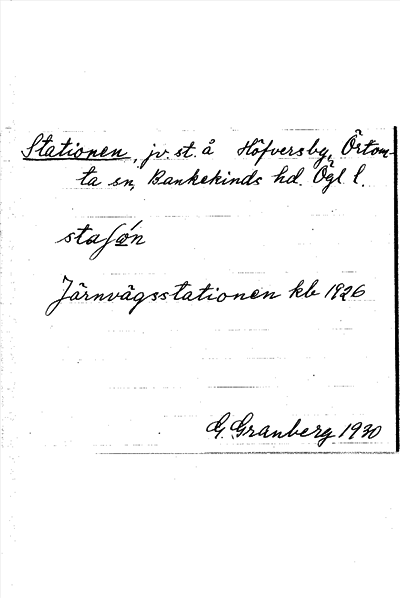 Stationen, jv. st. å Höfversby, Örtom-
ta sn, Bankekinds hd. Ögl. l.
staʃǿn
Järnvägsstationen kb 1926
G. Granberg 1930